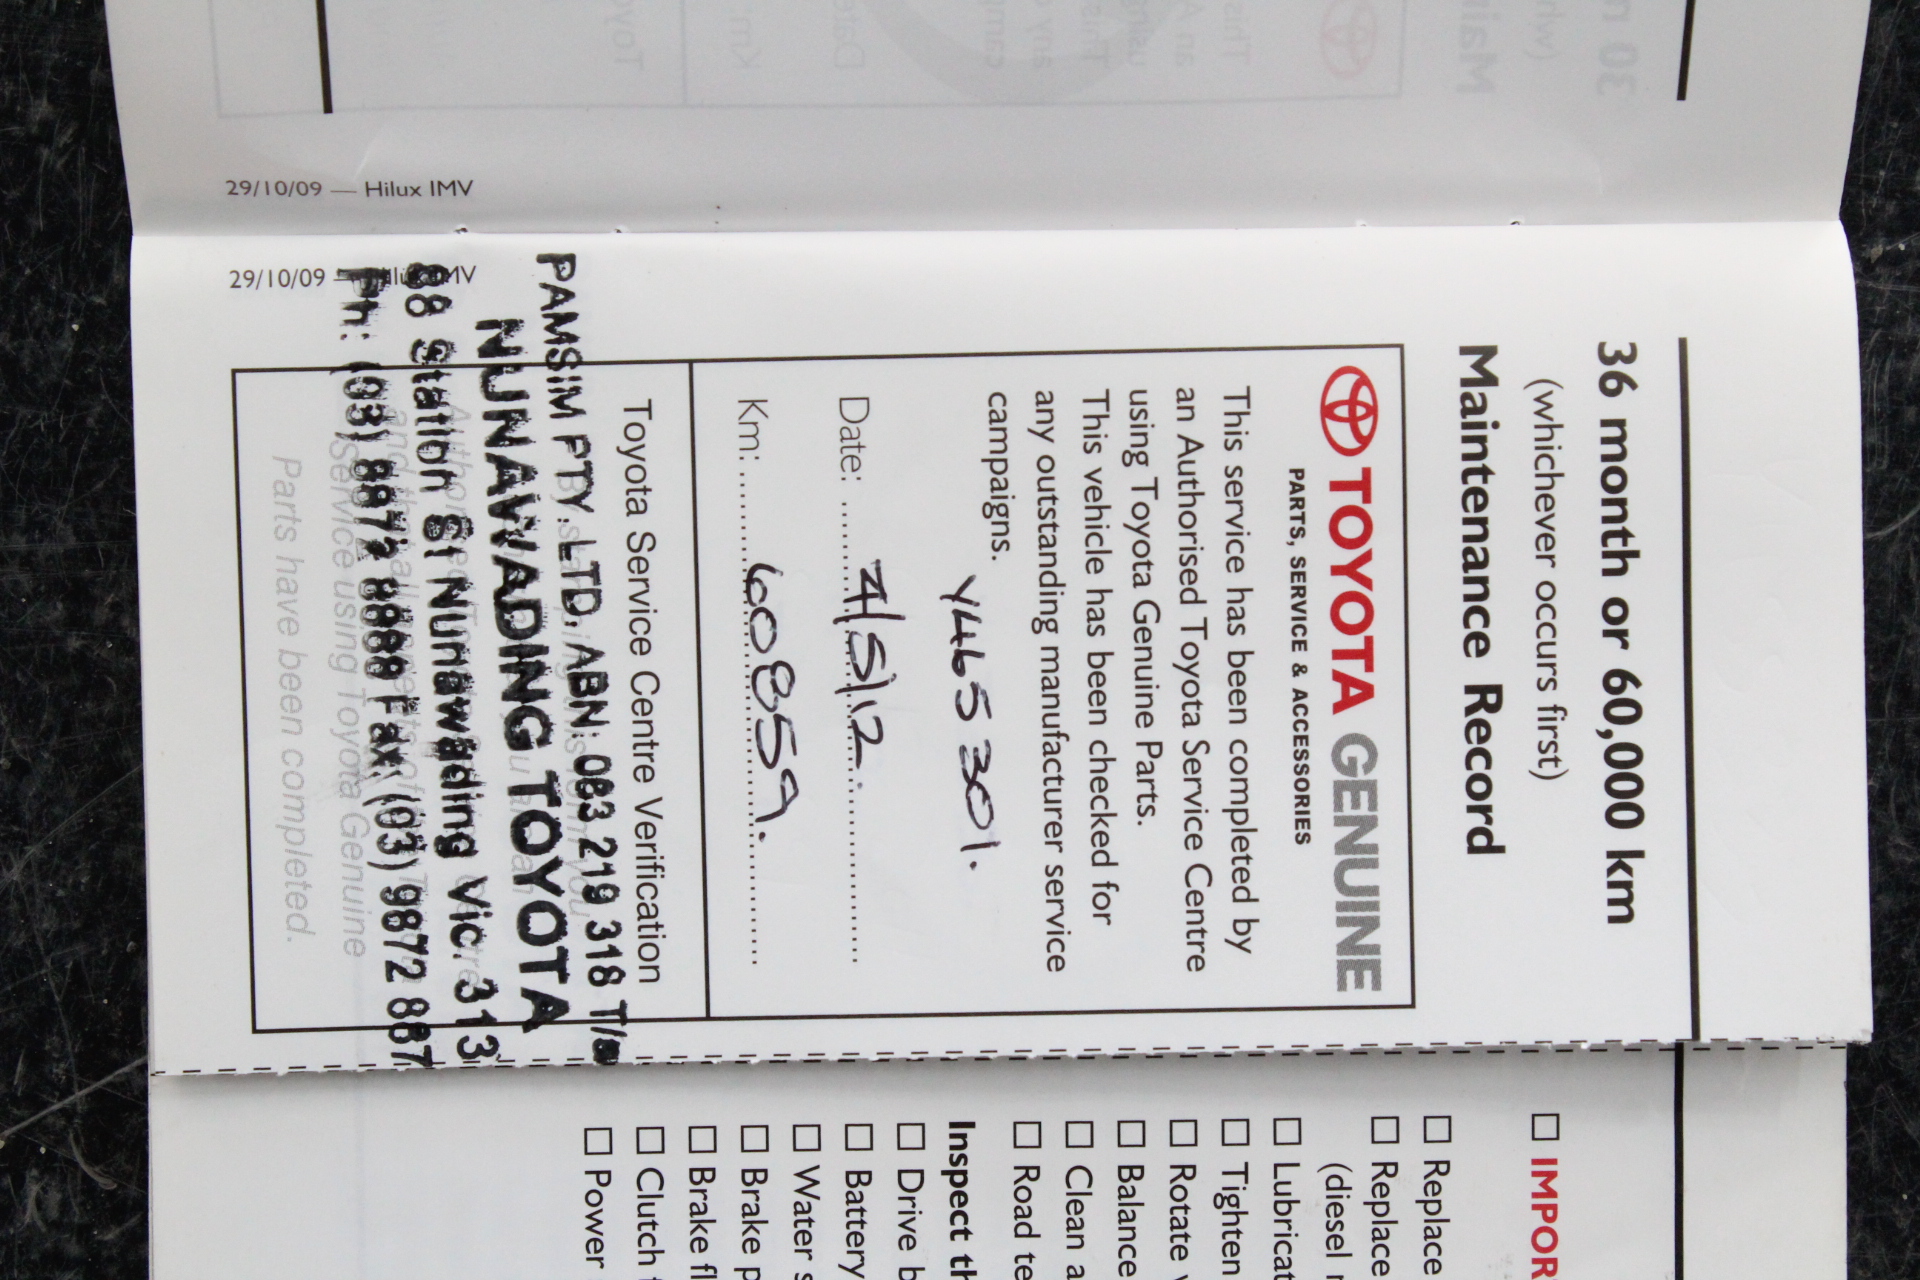 29/10/09 — Hilux IMV
29/10/09 — Hilux IMV
36 month or 60,000 km
(whichever occurs first)
Maintenance Record
TOYOTA GENUINE
PARTS, SERVICE & ACCESSORIES
This service has been completed by
an Authorised Toyota Service Centre
using Toyota Genuine Parts.
This vehicle has been checked for
any outstanding manufacturer service
campaigns.
Y465301.
Date: 4/5/12.
Km: 60859.
Toyota Service Centre Verification
PAMSIM PTY. LTD. ABN: 083 219 318 T/a
NUNAWADING TOYOTA
Station St Nunawading Vic. 313
Ph: (03) 8872 8888 Fax: (03) 9872 887
service using Toyota Genuine
Parts have been completed.
☐ IMPOR
☐ Replace
☐ Replace
(diesel
☐ Lubricat
☐ Tighten
☐ Rotate
☐ Balance
☐ Clean a
☐ Road te
Inspect th
☐ Drive b
☐ Battery
☐ Water s
☐ Brake p
☐ Brake fl
☐ Clutch
☐ Power